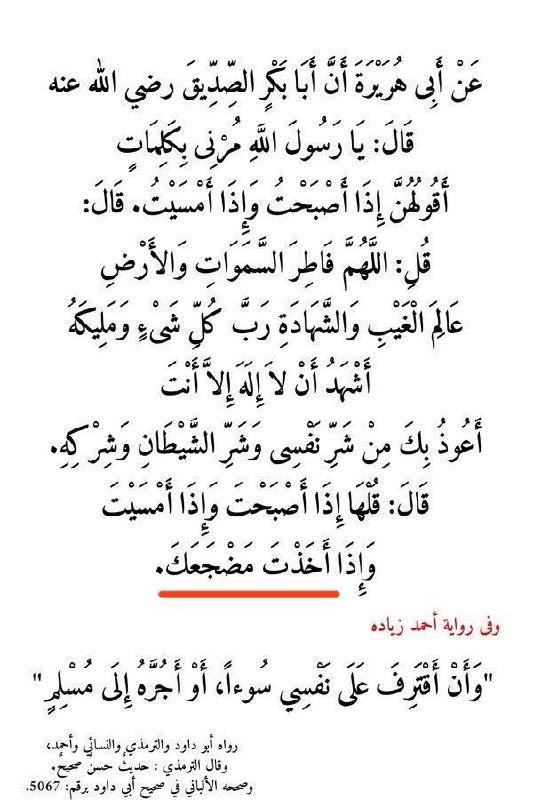 عَنْ أَبِى هُرَيْرَةَ أَنَّ أَبَا بَكْرٍ الصِّدِّيقَ رضي الله عنه
قَالَ: يَا رَسُولَ اللَّهِ مُرْنِى بِكَلِمَاتٍ
أَقُولُهُنَّ إِذَا أَصْبَحْتُ وَإِذَا أَمْسَيْتُ. قَالَ:
قُلِ: اللَّهُمَّ فَاطِرَ السَّمَوَاتِ وَالأَرْضِ
عَالِمَ الْغَيْبِ وَالشَّهَادَةِ رَبَّ كُلِّ شَىْءٍ وَمَلِيكَهُ
أَشْهَدُ أَنْ لاَ إِلَهَ إِلاَّ أَنْتَ
أَعُوذُ بِكَ مِنْ شَرِّ نَفْسِى وَشَرِّ الشَّيْطَانِ وَشِرْكِهِ.
قَالَ: قُلْهَا إِذَا أَصْبَحْتَ وَإِذَا أَمْسَيْتَ
وَإِذَا أَخَذْتَ مَضْجَعَكَ.
وفى رواية أحمد زياده
"وَأَنْ أَقْتَرِفَ عَلَى نَفْسِي سُوءاً، أَوْ أَجُرَّهُ إِلَى مُسْلِمٍ"
رواه أبو داود والترمذي والنسائي وأحمد،
وقال الترمذي : حديثٌ حسنٌ صحيحٌ.
وصححه الألباني في صحيح أبي داود برقم: 5067.